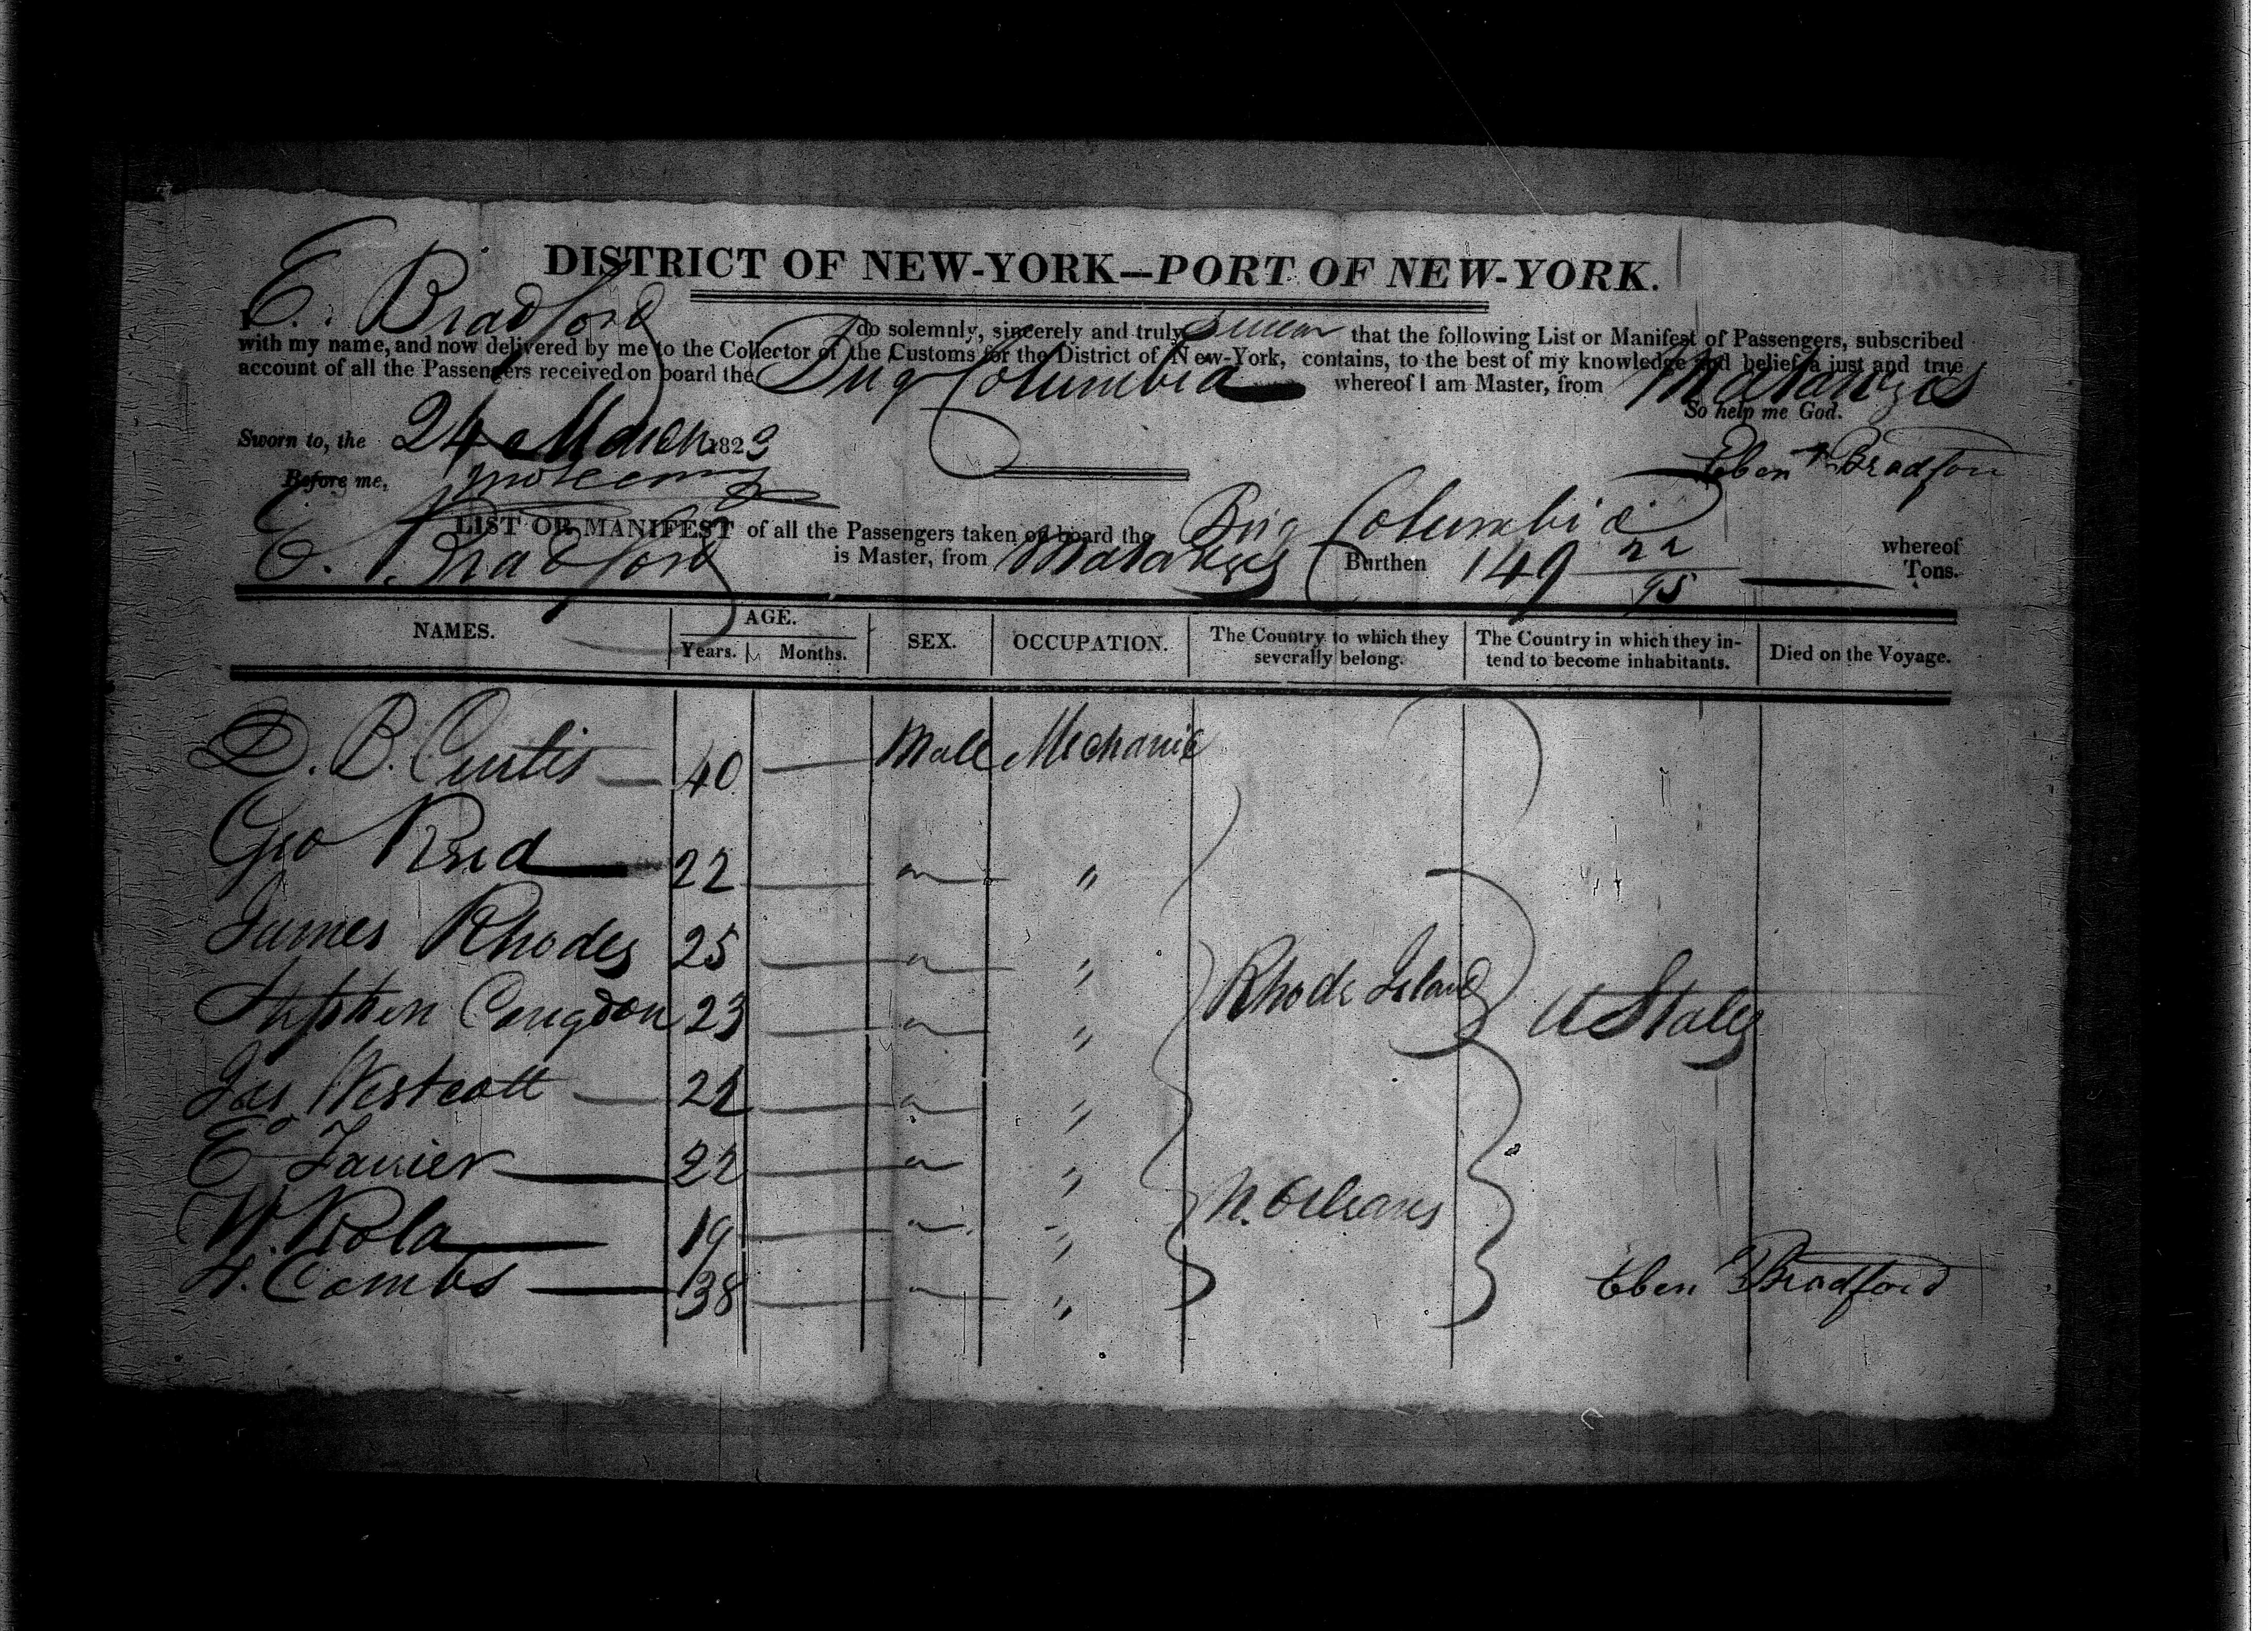 DISTRICT OF NEW-YORK—PORT OF NEW-YORK.
I E. Bradford do solemnly, sincerely and truly swear that the following List or Manifest of Passengers, subscribed
with my name, and now delivered by me to the Collector of the Customs for the District of New-York, contains, to the best of my knowledge and belief, a just and true
account of all the Passengers received on board the Brig Columbia whereof I am Master, from Matanzas
So help me God.
Sworn to, the 24 March 1823
Eben Bradford
Before me,
LIST OR MANIFEST of all the Passengers taken on board the Brig Columbia whereof
E. Bradford is Master, from Matanzas Burthen 149 22/95 Tons.
NAMES. AGE. SEX. OCCUPATION. The Country to which they severally belong. The Country in which they intend to become inhabitants. Died on the Voyage.
Years. Months.
D. B. Curtis — 40 — Male Mechanic
Geo Reed — 22 — " "
James Rhodes 25 — " "
Stephen Congdon 23 — " " Rhode Island U States
Jas Westcott — 22 — " "
E — 22 — " "
W. Rola — 19 — " " N. Orleans
Combs — 38 — " "
Eben Bradford